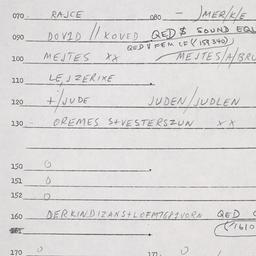 070 RAJCE 080 — JMER/K/E
090 DOVID // KOVED QED $ SOUND EQU
QED & FEM CF (/159340)
100 MEJTES xx MEJTES/A/BRU
110 LEJZERIXE
120 +/JUDE JUDEN/JUDLEN
130 OREMES S+VESTERSZUN xx
150 0
151 0
152 0
160 DERKINDIZANS+LOFM7681VORN QED C
(/1610
170 0 171 0